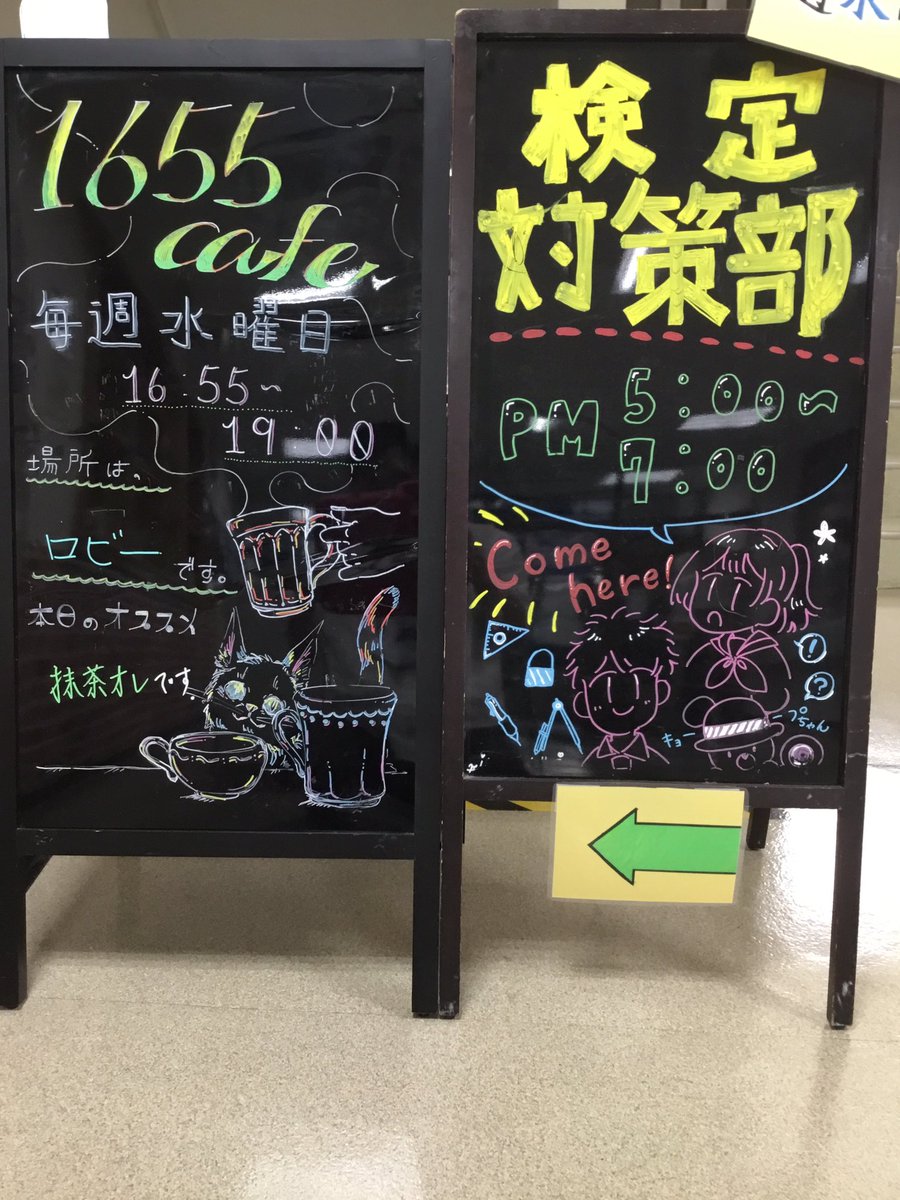 1655
cafe
毎週水曜日
16:55~
19:00
場所は。
ロビー
です。
本日のオススメ
抹茶オレです
検定
対策部
PM 5:00~
7:00
Come
here!
!
?
キョー
プちゃん